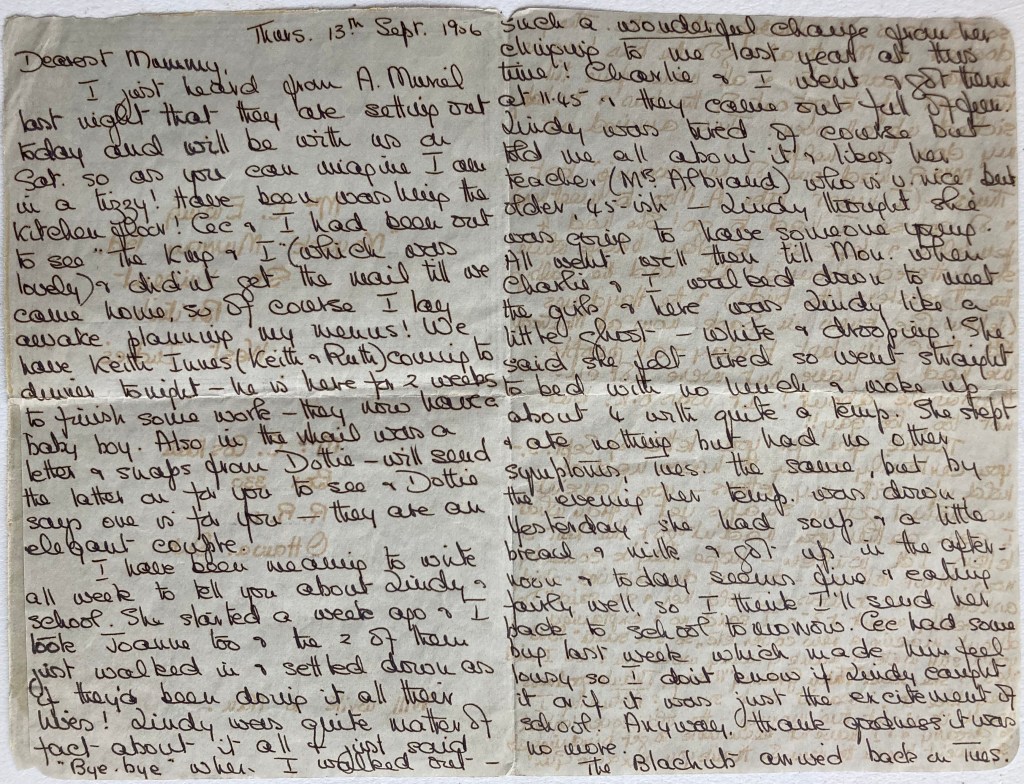 Thurs. 13th Sept. 1956
Dearest Mummy,
I just heard from A. Muriel
last night that they are setting out
today and will be with us on
Sat. so as you can imagine I am
in a tizzy! Have been washing the
kitchen floor! Cec & I had been out
to see "The King & I" (which was
lovely) & didn't get the mail till we
came home, so of course I lay
awake planning my menus! We
have Keith Innes (Keith & Ruth) coming to
dinner tonight – he is here for 2 weeks
to finish some work – they now have a
baby boy. Also in the mail was a
letter & snaps from Dottie – will send
the latter on for you to see & Dottie
says one is for you – they are an
elegant couple.
I have been meaning to write
all week to tell you about Lindy &
school. She started a week ago & I
took Joanne too & the 2 of them
just walked in & settled down as
if they'd been doing it all their
lives! Lindy was quite matter of
fact about it all & just said
"Bye-bye" when I walked out –
such a wonderful change from her
clinging to me last year at this
time! Charlie & I went & got them
at 11.45 & they came out full of glee.
Lindy was tired of course but
told me all about it & likes her
teacher (Mrs. ) who is v. nice, but
older, 45-ish – Lindy thought she
was going to have someone young.
All went well then till Mon. when
Charlie & I walked down to meet
the girls & here was Lindy like a
little ghost – white & drooping! She
said she felt tired so went straight
to bed with no lunch & woke up
about 4 with quite a temp. She slept
& ate nothing but had no other
symptoms. Tues. the same, but by
the evening her temp. was down,
yesterday she had soup & a little
bread & milk & got up in the after-
noon & today seems fine & eating
fairly well, so I think I'll send her
back to school tomorrow. Cec had some
bug last week which made him feel
lousy so I don't know if Lindy caught
it or if it was just the excitement of
school! Anyway, thank goodness it was
no more.
The arrived back on Tues.